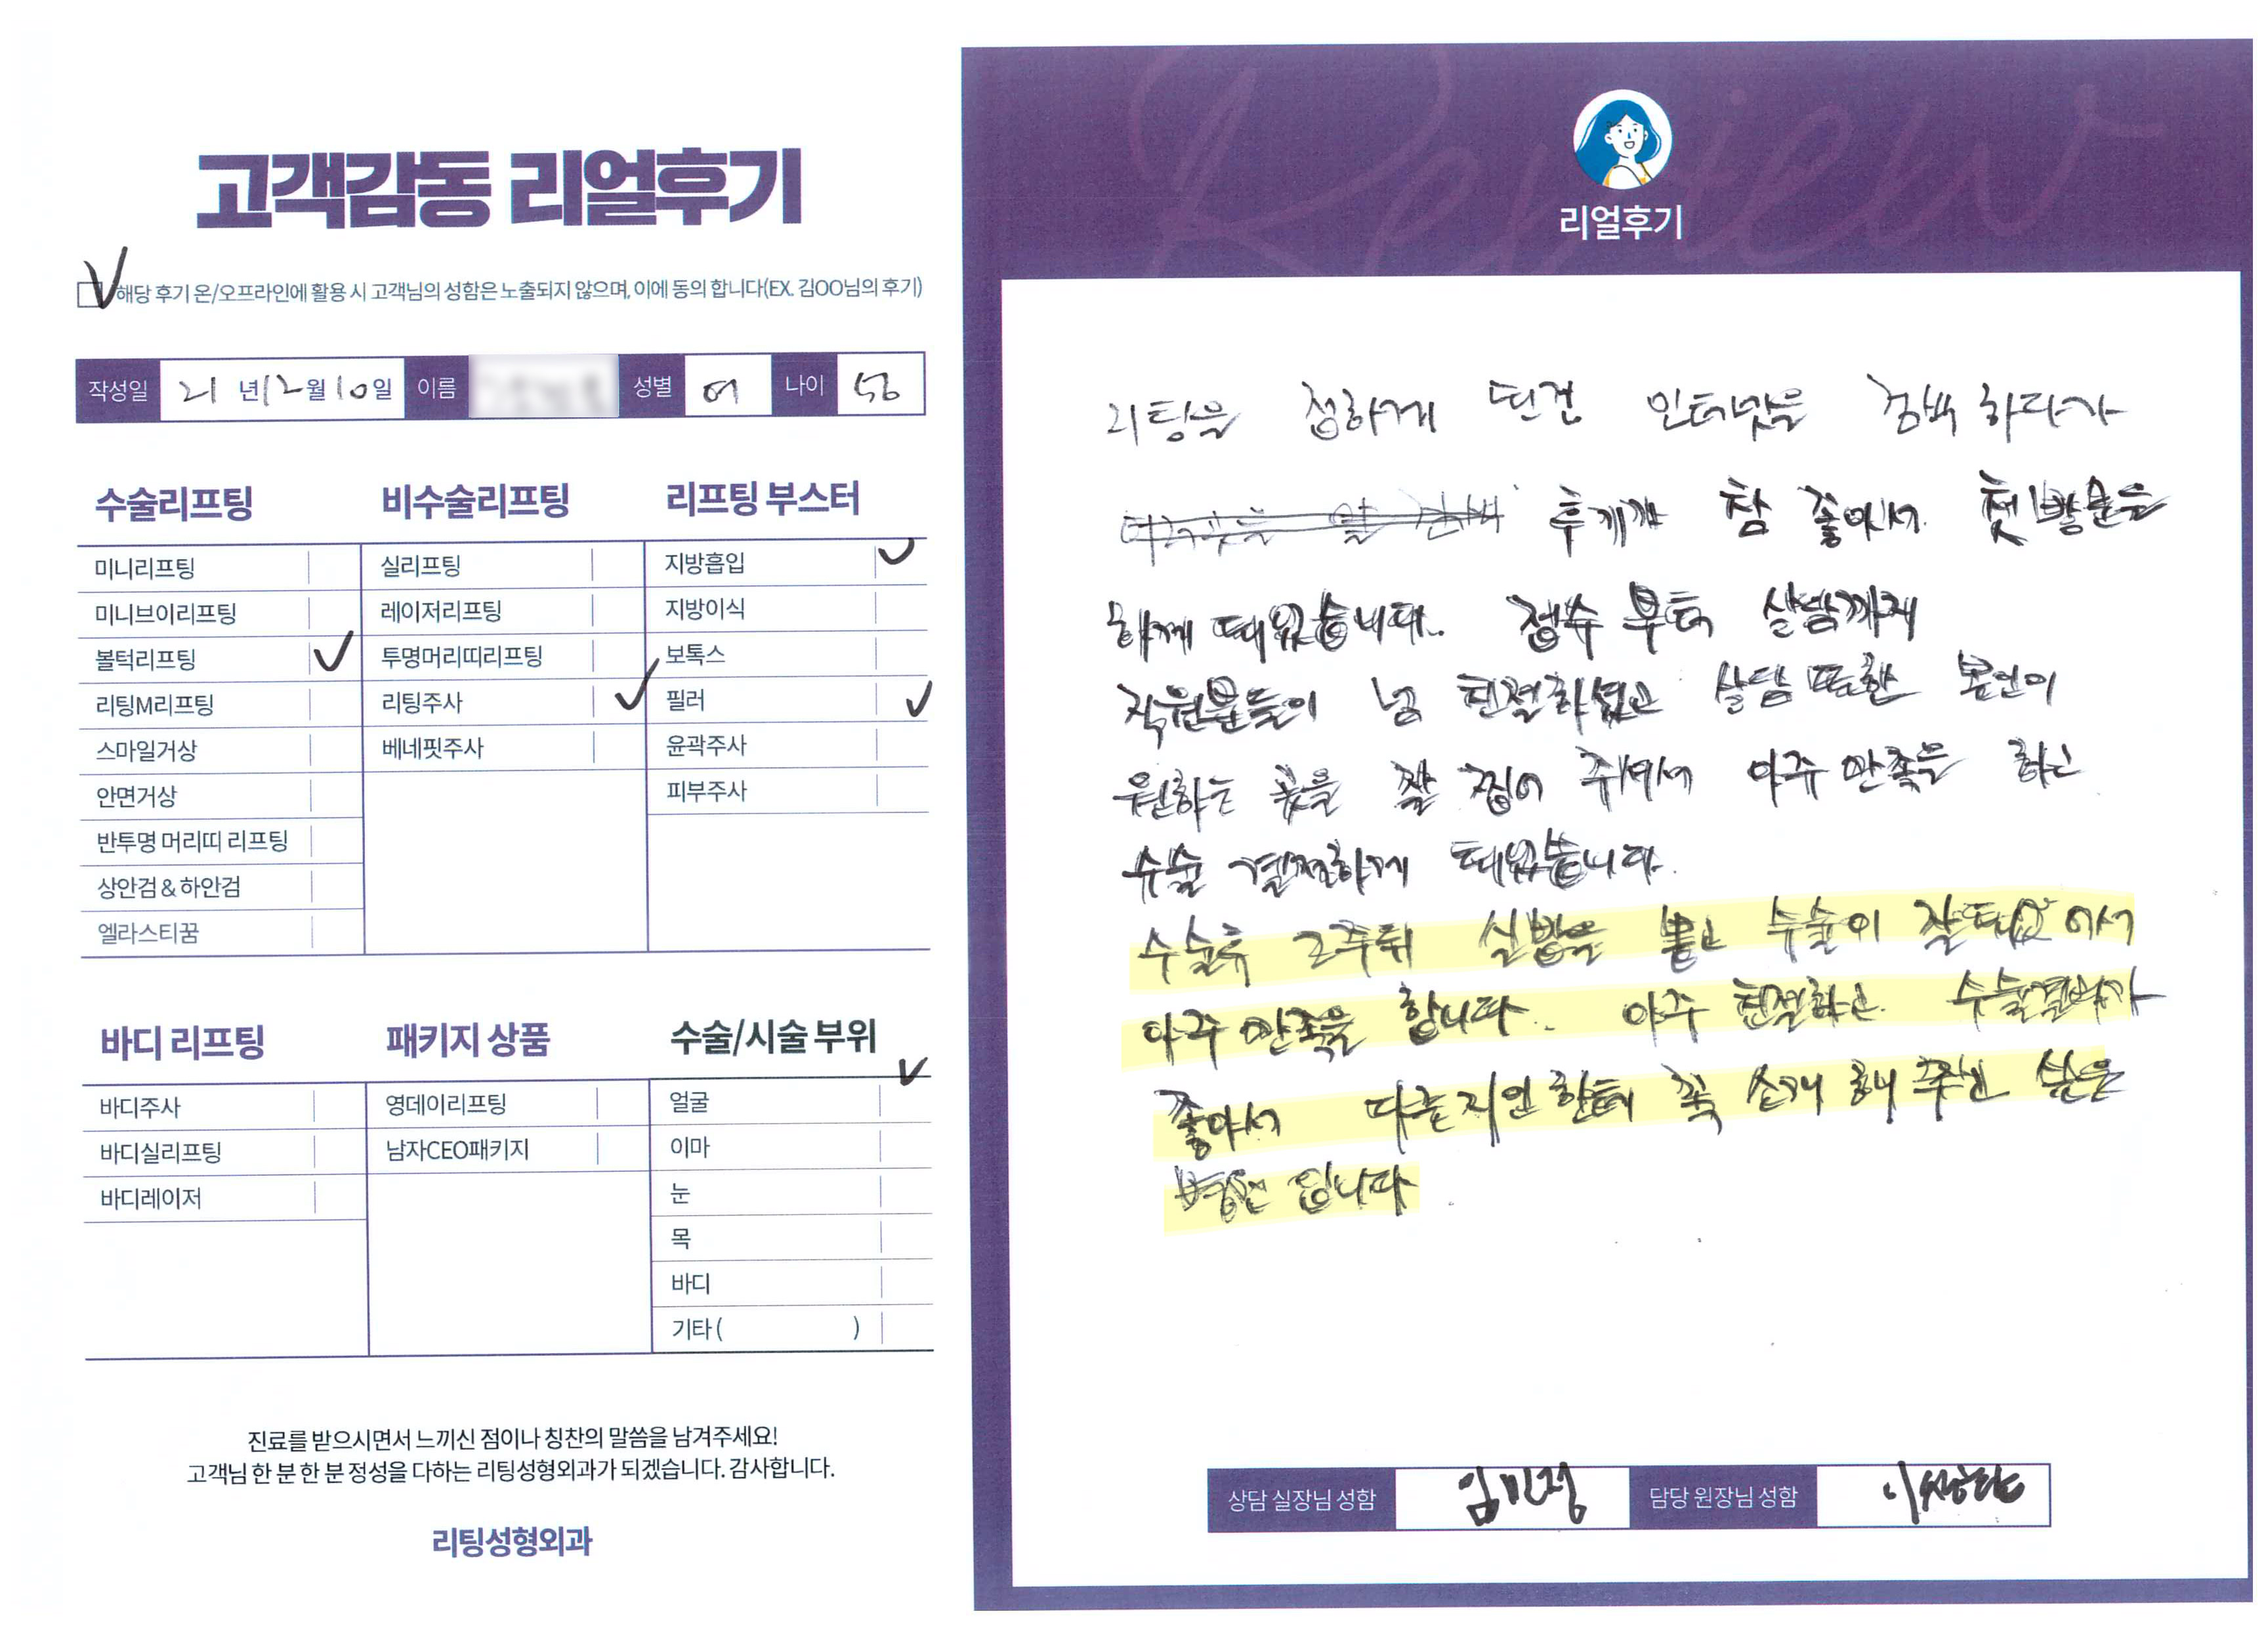 고객감동 리얼후기
해당 후기 온/오프라인에 활용 시 고객님의 성함은 노출되지 않으며, 이에 동의 합니다(EX. 김OO님의 후기)
작성일 21 년 12 월 10 일 이름 성별 여 나이 56
수술리프팅
미니리프팅
미니브이리프팅
볼턱리프팅
리팅M리프팅
스마일거상
안면거상
반투명 머리띠 리프팅
상안검 & 하안검
엘라스티꿈
비수술리프팅
실리프팅
레이저리프팅
투명머리띠리프팅
리팅주사
베네핏주사
리프팅 부스터
지방흡입
지방이식
보톡스
필러
윤곽주사
피부주사
바디 리프팅
바디주사
바디실리프팅
바디레이저
패키지 상품
영데이리프팅
남자CEO패키지
수술/시술 부위
얼굴
이마
눈
목
바디
기타 ( )
진료를 받으시면서 느끼신 점이나 칭찬의 말씀을 남겨주세요!
고객님 한 분 한 분 정성을 다하는 리팅성형외과가 되겠습니다. 감사합니다.
리팅성형외과
Review
리얼후기
리팅을 접하게 된건 인터넷을 검색 하다가
후게가 참 좋아서 첫 발문을
하게 돼었습니다. 접수 부터 상담까지
직원분들이 넘 친절하셨고 상담 또한 본인이
원하는 곳을 잘 찝어 주셔서 아주 만족을 하고
수술 결정하게 돼었습니다.
수술후 2주뒤 실밥을 뽑고 수술이 잘돼었어서
아주 만족을 합니다. 아주 친절하고 수술결과가
좋아서 다른지인 한테 꼭 소개 해 주고 싶은
병원 입니다
상담 실장님 성함 임민정 담당 원장님 성함